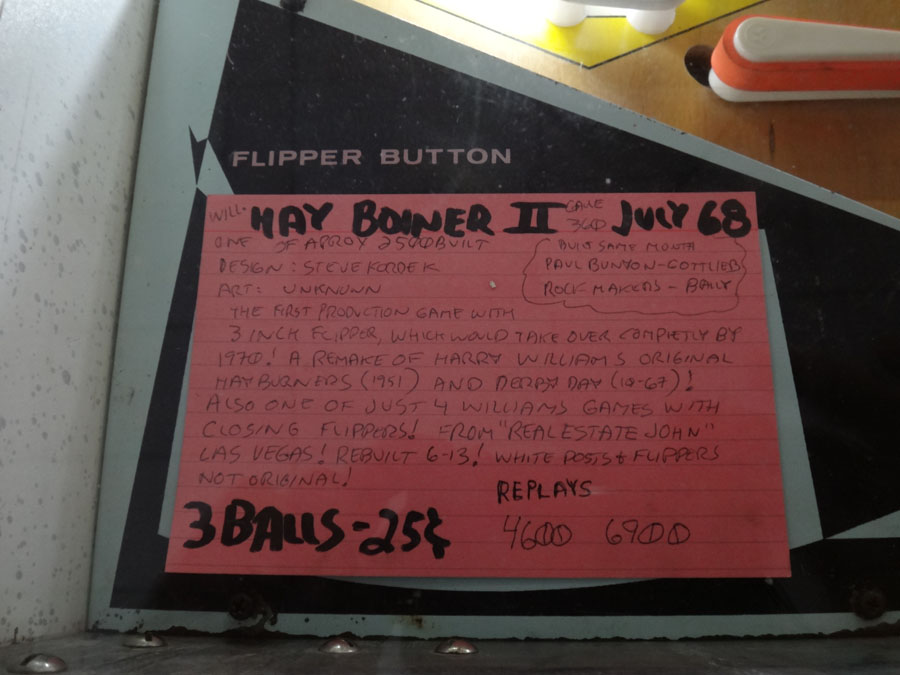 FLIPPER BUTTON
WILL. HAY BOINER II GAME 360 JULY 68
ONE OF APROX 2500 BUILT
DESIGN: STEVE KORDEK
ART: UNKNOWN
BUILT SAME MONTH
PAUL BUNYON-GOTTLIEB
ROCK MAKERS - BALLY
THE FIRST PRODUCTION GAME WITH
3 INCH FLIPPER, WHICH WOULD TAKE OVER COMPLETLY BY
1970! A REMAKE OF HARRY WILLIAMS ORIGINAL
HAYBURNERS (1951) AND DERBY DAY (10-67)!
ALSO ONE OF JUST 4 WILLIAMS GAMES WITH
CLOSING FLIPPERS! FROM "REAL ESTATE JOHN"
LAS VEGAS! REBUILT 6-13! WHITE POSTS & FLIPPERS
NOT ORIGINAL!
REPLAYS
3 BALLS-25¢ 4600 6900